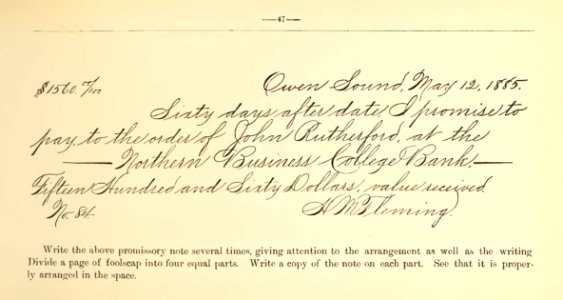 —47—
$1560.⁰⁄₁₀₀ Owen Sound, May 12, 1885.
Sixty days after date I promise to
pay to the order of John Rutherford, at the
— Northern Business College Bank —
Fifteen Hundred and Sixty Dollars, value received.
No. 84. H M Fleming.
Write the above promissory note several times, giving attention to the arrangement as well as the writing
Divide a page of foolscap into four equal parts. Write a copy of the note on each part. See that it is proper-
ly arranged in the space.